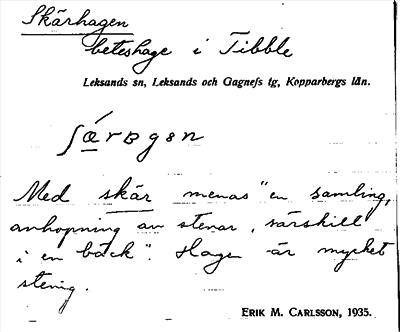 Skärhagen
beteshage i Tibble
Leksands sn, Leksands och Gagnefs tg, Kopparbergs län.
ʃǽrɒgən
Med skär menas "en samling,
anhopning av stenar, särskilt
i en bäck". Hagen är mycket
stenig.
ERIK M. CARLSSON, 1935.